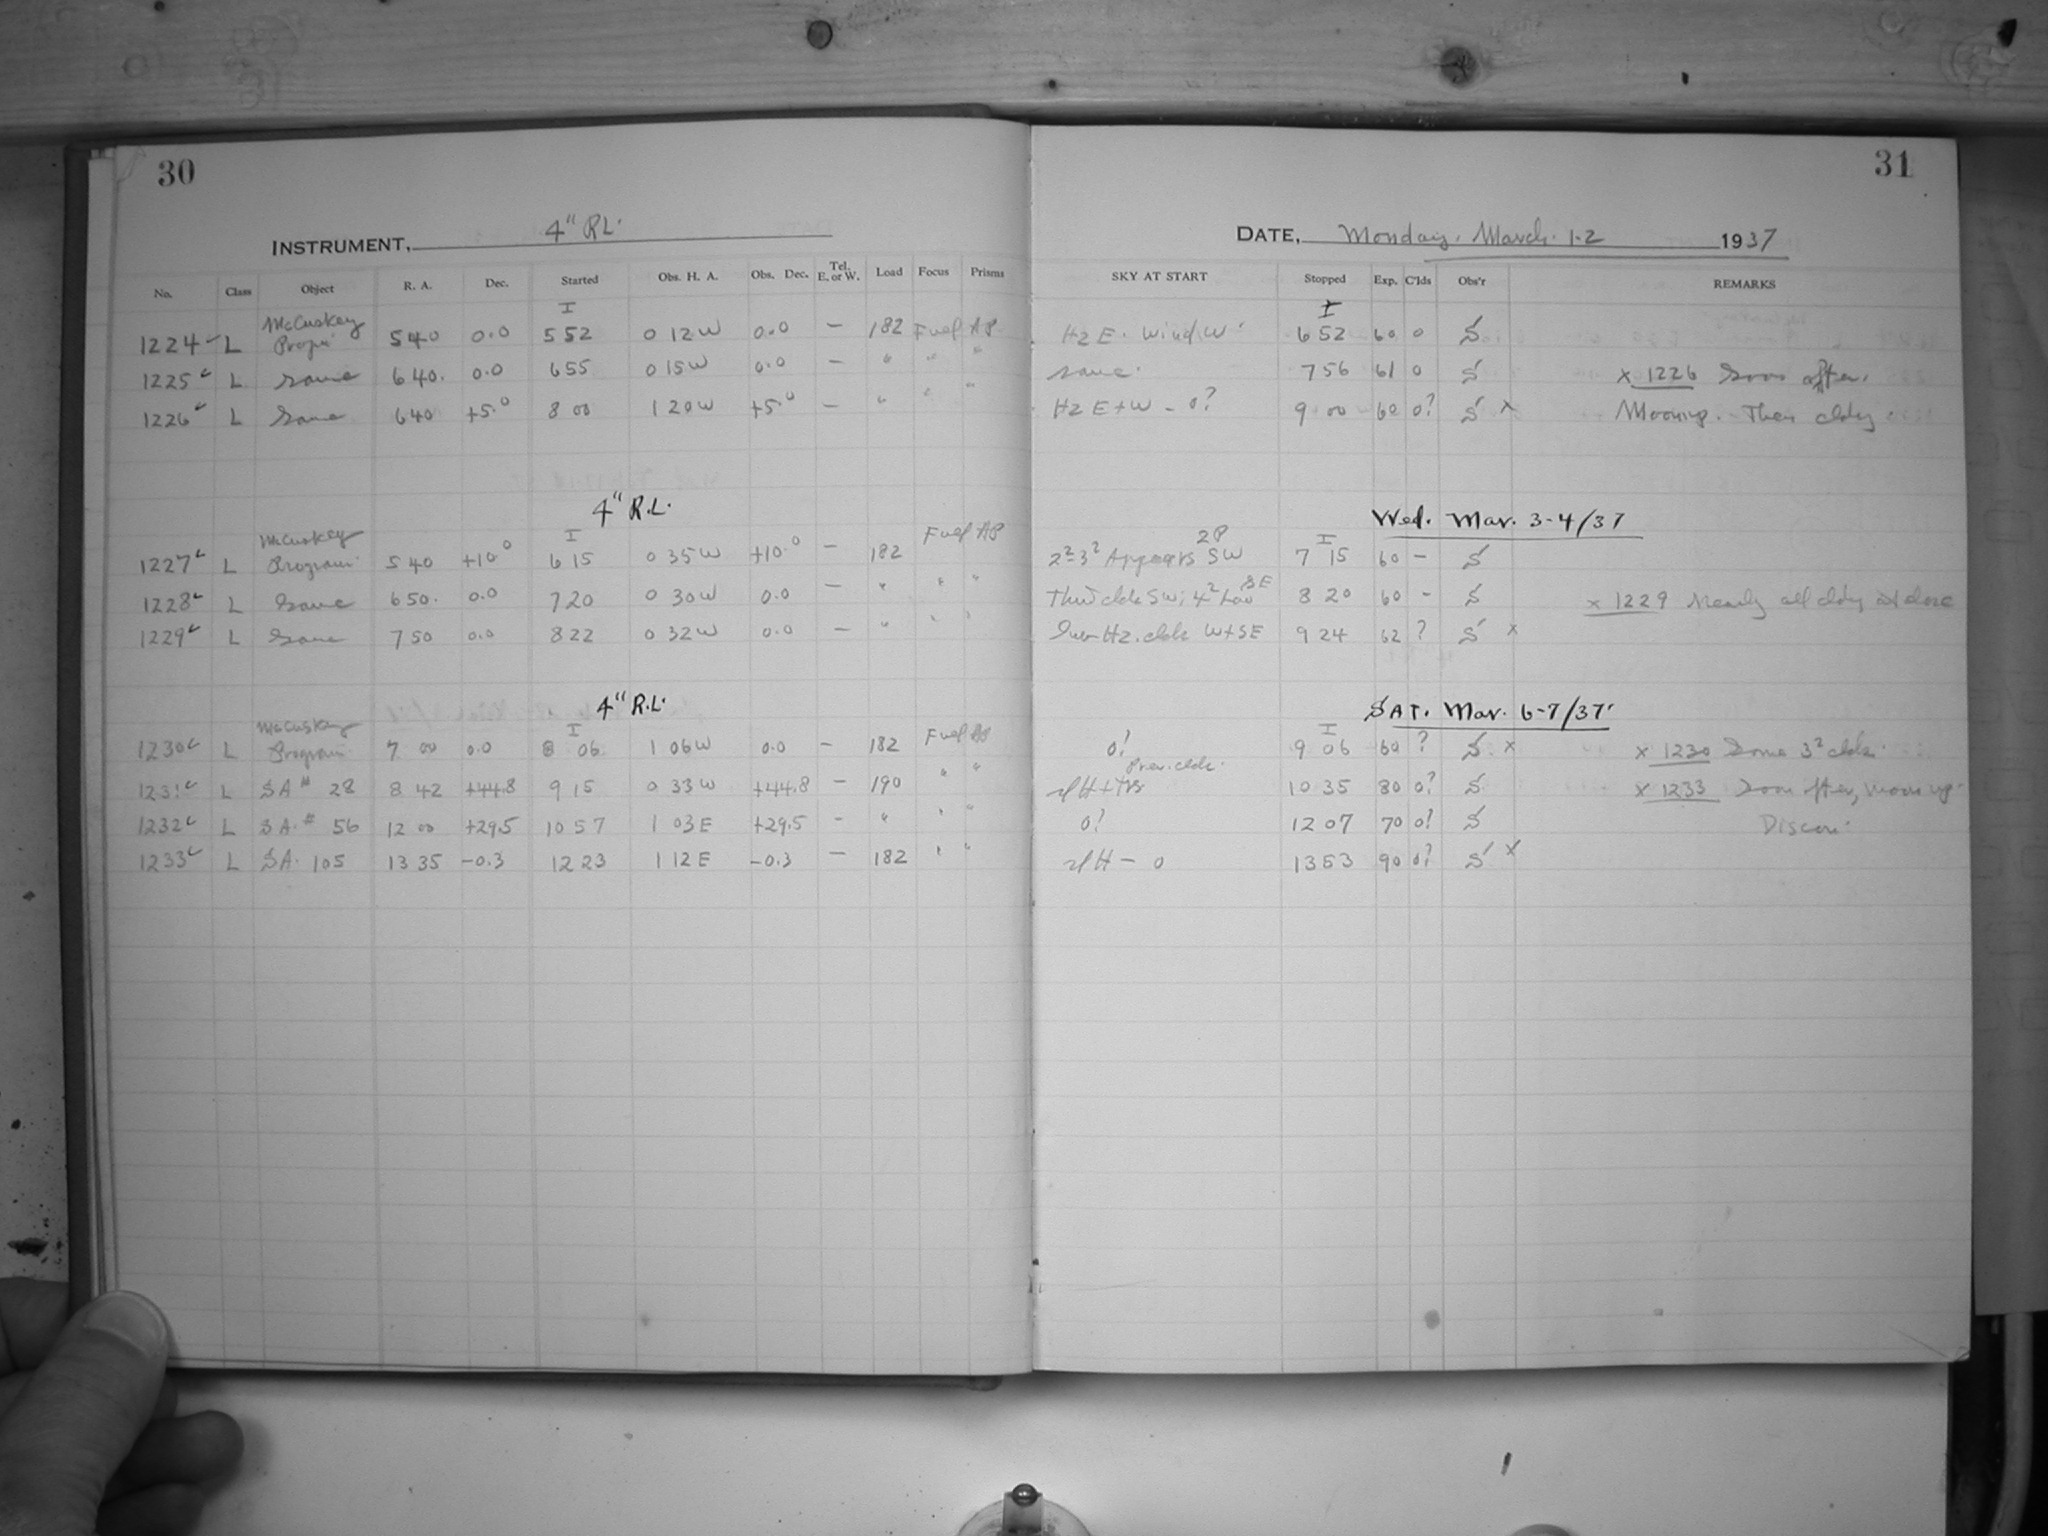 30
INSTRUMENT, 4" RL.
No. Class Object R. A. Dec. Started Obs. H. A. Obs. Dec. Tel. E. or W. Load Focus Prisms
I
1224 L McCuskey 5 40 0.0 5 52 0 12 W 0.0 — 182 AP
1225 L Same 6 40. 0.0 6 55 0 15 W 0.0 — " " "
1226 L Same 6 40 +5.0 8 00 1 20 W +5.0 — " " "
4" R.L.
I
1227 L McCuskey Program 5 40 +10.0 6 15 0 35 W +10.0 — 182 AP
1228 L Same 6 50. 0.0 7 20 0 30 W 0.0 — " " "
1229 L Same 7 50 0.0 8 22 0 32 W 0.0 — " " "
4" R.L.
I
1230 L McCuskey Program 7 00 0.0 8 06 1 06 W 0.0 — 182
1231 L SA # 28 8 42 +44.8 9 15 0 33 W +44.8 — 190 " "
1232 L SA. # 56 12 00 +29.5 10 57 1 03 E +29.5 — " " "
1233 L SA. 105 13 35 -0.3 12 23 1 12 E -0.3 — 182 " "
31
DATE, Monday. March. 1-2 1937
SKY AT START Stopped Exp. C'lds Obs'r REMARKS
I
Hz E. Wind W. 6 52 60 0 S
same. 7 56 61 0 S x 1226 Soon after.
Hz E + W - 0? 9 00 60 0? S x Moon up. Then cldy
Wed. Mar. 3-4/37
2P I
2²-3² Appears SW 7 15 60 - S
SW; 4² Low SE 8 20 60 - S x 1229 Nearly all cldy at close
Hz. clds W+SE 9 24 62 ? S x
SAT. Mar. 6-7/37.
I
0? 9 06 60 ? S. x x 1230 Some 3² clds.
Prev. clds.
10 35 80 0? S x 1233 Soon after, moon up.
0? 12 07 70 0? S
- 0 13 53 90 0? S x